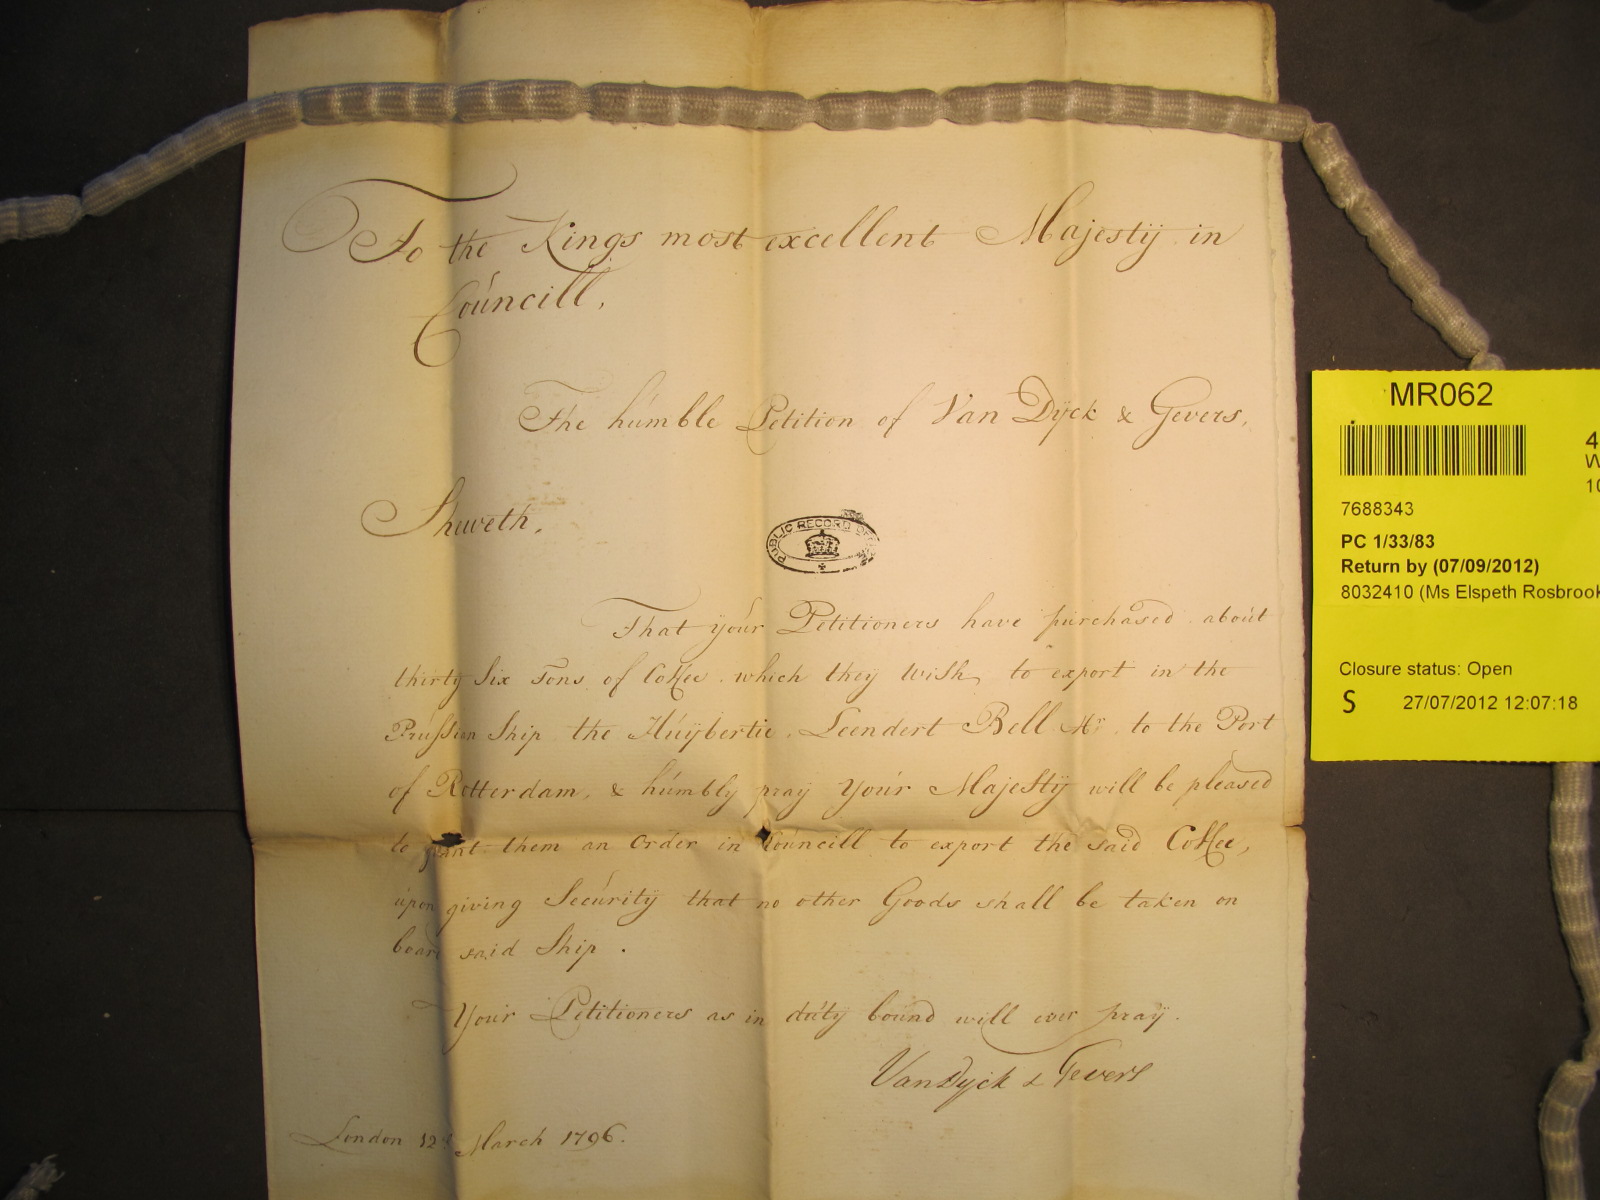 To the Kings most excellent Majestÿ in
Councill,
The humble Petition of Van Dÿck & Gevers,
Sheweth,
PUBLIC RECORD OFFICE
That your Petitioners have purchased about
thirty Six Tons of Coffee which they wish to export in the
Prussian Ship the Huÿbertie, Leendert Bell Mr. to the Port
of Rotterdam, & humbly pray Your Majestÿ will be pleased
to grant them an Order in Councill to export the said Coffee,
upon giving Securitÿ that no other Goods shall be taken on
board said Ship.
Your Petitioners as in duty bound will ever praÿ.
Van Dyck & Gevers
London 12th March 1796.
MR062
7688343
PC 1/33/83
Return by (07/09/2012)
8032410 (Ms Elspeth Rosbrook
Closure status: Open
S 27/07/2012 12:07:18
4
W
10